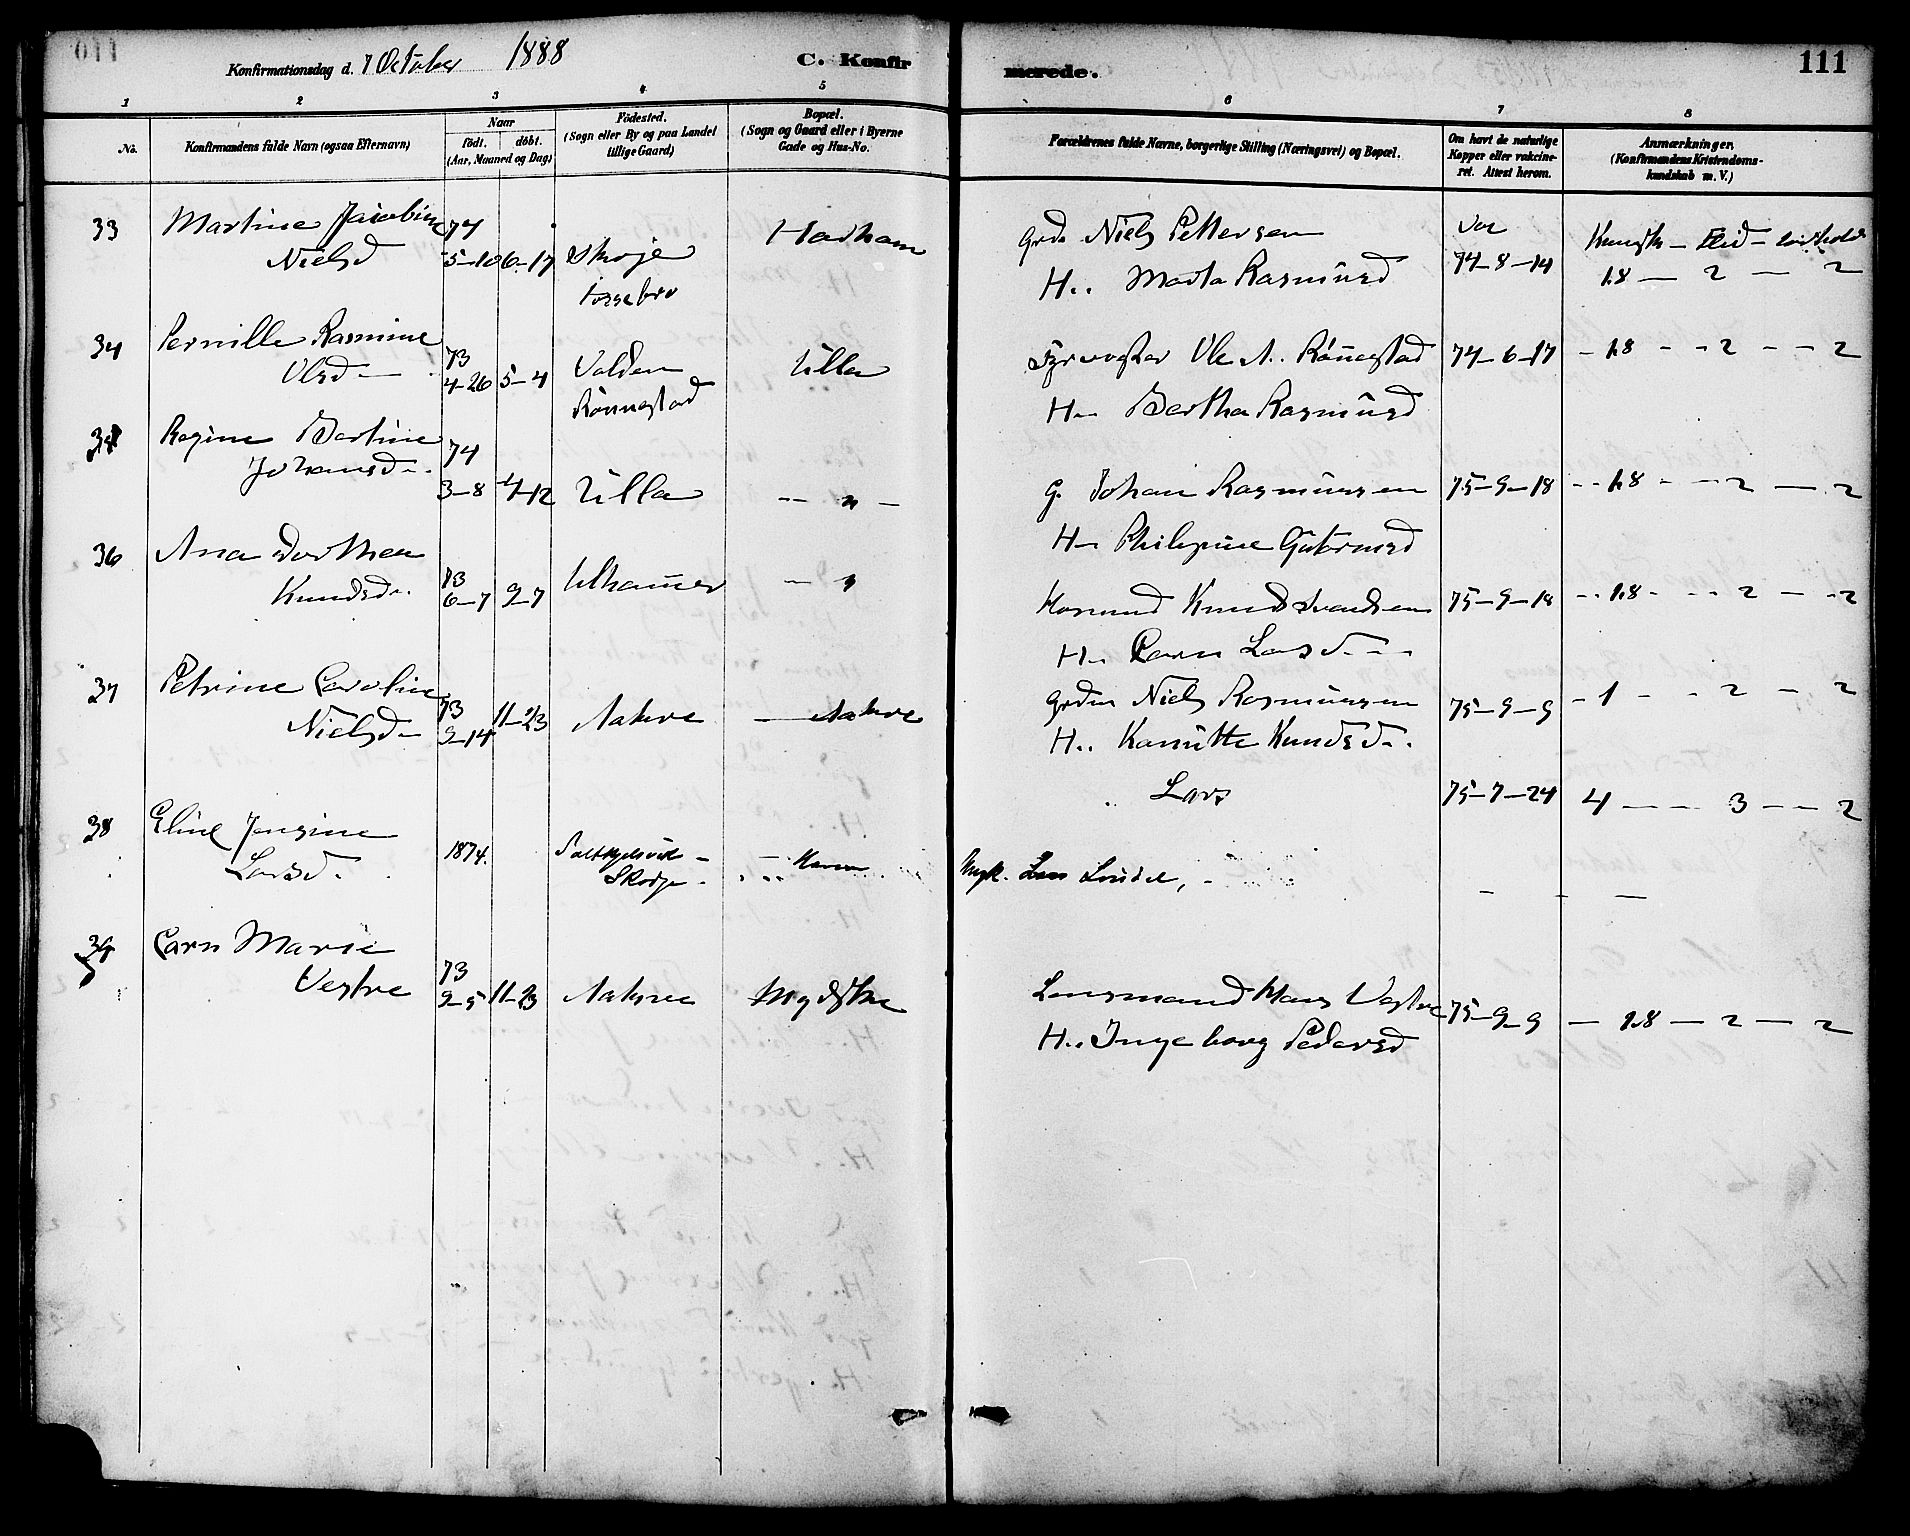 Konfirmationsdag d. 7 October 1888
C. Konfirmerede.
111
1 2 3 4 5 6 7 8
No.
Konfirmandens fulde Navn (ogsaa Efternavn)
Naar
födt. döbt.
(Aar, Maaned og Dag)
Födested.
(Sogn eller By og paa Landet
tillige Gaard)
Bopæl.
(Sogn og Gaard eller i Byerne
Gade og Hus-No.
Forældrenes fulde Navne, borgerlige Stilling (Næringsvei) og Bopæl.
Om havt de naturlige
Kopper eller vakcine-
ret. Attest herom.
Anmærkninger.
(Konfirmandens Kristendoms-
kundskab m. V.)
33 Martine Jacobine 74 Harham Grd. Niels Pettersen Vac
Nielsd 5-10 6-17 Skoje H.. Marta Rasmusd 74-8-14 1.8 — 2 — 2
34 Pernille Rasmine 73 Valden Ulla Fyrvogter Ole A. Rönnestad 74-6-17 - 1.8 - - 2 - - 2
Olsd— 4-26 5-4 Rönnestad H— Bertha Rasmusd
Regine Bertine 74
Johansd-. 3-8 4-12 Ulla -- " — G. Johan Rasmussen 75-9-18 -- 1.8 - - 2 — 2
H— Philipine
36 Ana Dorthea 73
Knudsd.. 6-7 9-7 Ulhammer — " Knud 75-9-18 -- 1.8 - -- 2 - - 2
H— Caren Larsd - - -
37 Petrine Caroline 73 Niels Rasmussen 75-9-9 - 1 - - 2 - 2
Nielsd— 9-14 11-23 Aakre — Aakre H.. Knudsd-.
Lars 75-7-24 4 — - 3 — - 2
38 Eline Jensine
Larsd- 1874. Skodje-
— — —
39 Caren Marie 73
Vestre 9-5 11-23 Aakre Lensmand Hans Vestre 75-9-9 — 1.8 — 2 — 2
H.. Ingeborg Pedersd